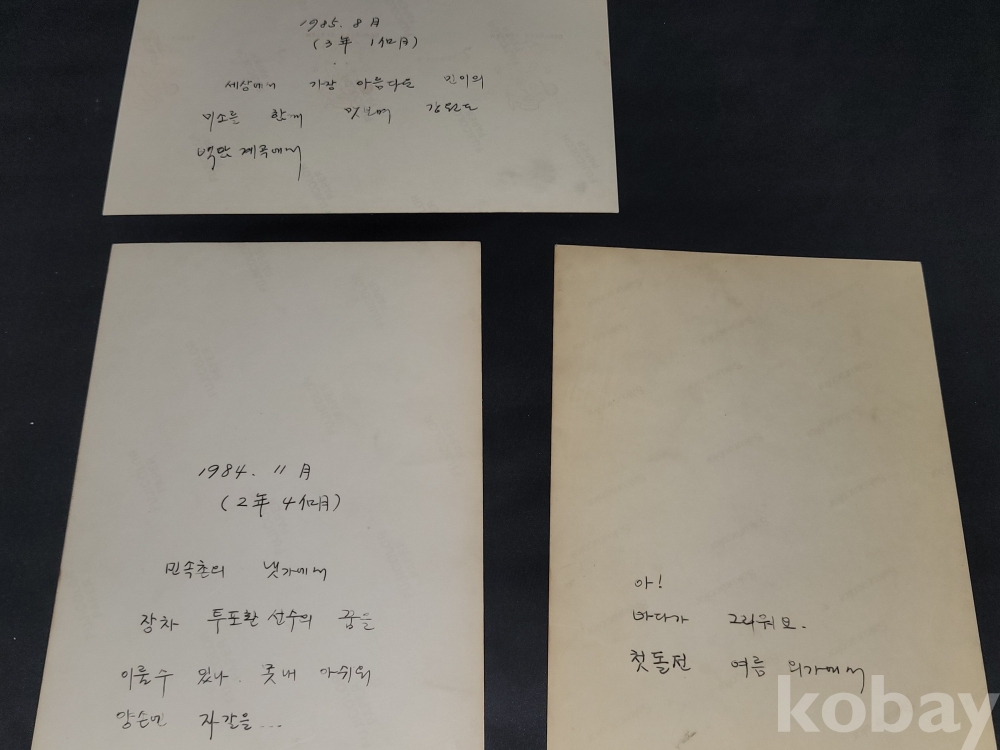 1985. 8月
(3年 1個月)
세상에서 가장 아름다운 민이의
미소를 함께 맛보며 강원도
백담 계곡에서
1984. 11月
(2年 4個月)
민속촌의 냇가에서
장차 투포환 선수의 꿈을
이룰 수 있나. 못내 아쉬워
양손엔 자갈을...
아!
바다가 그리워요.
첫돌전 여름 외가에서
kobay